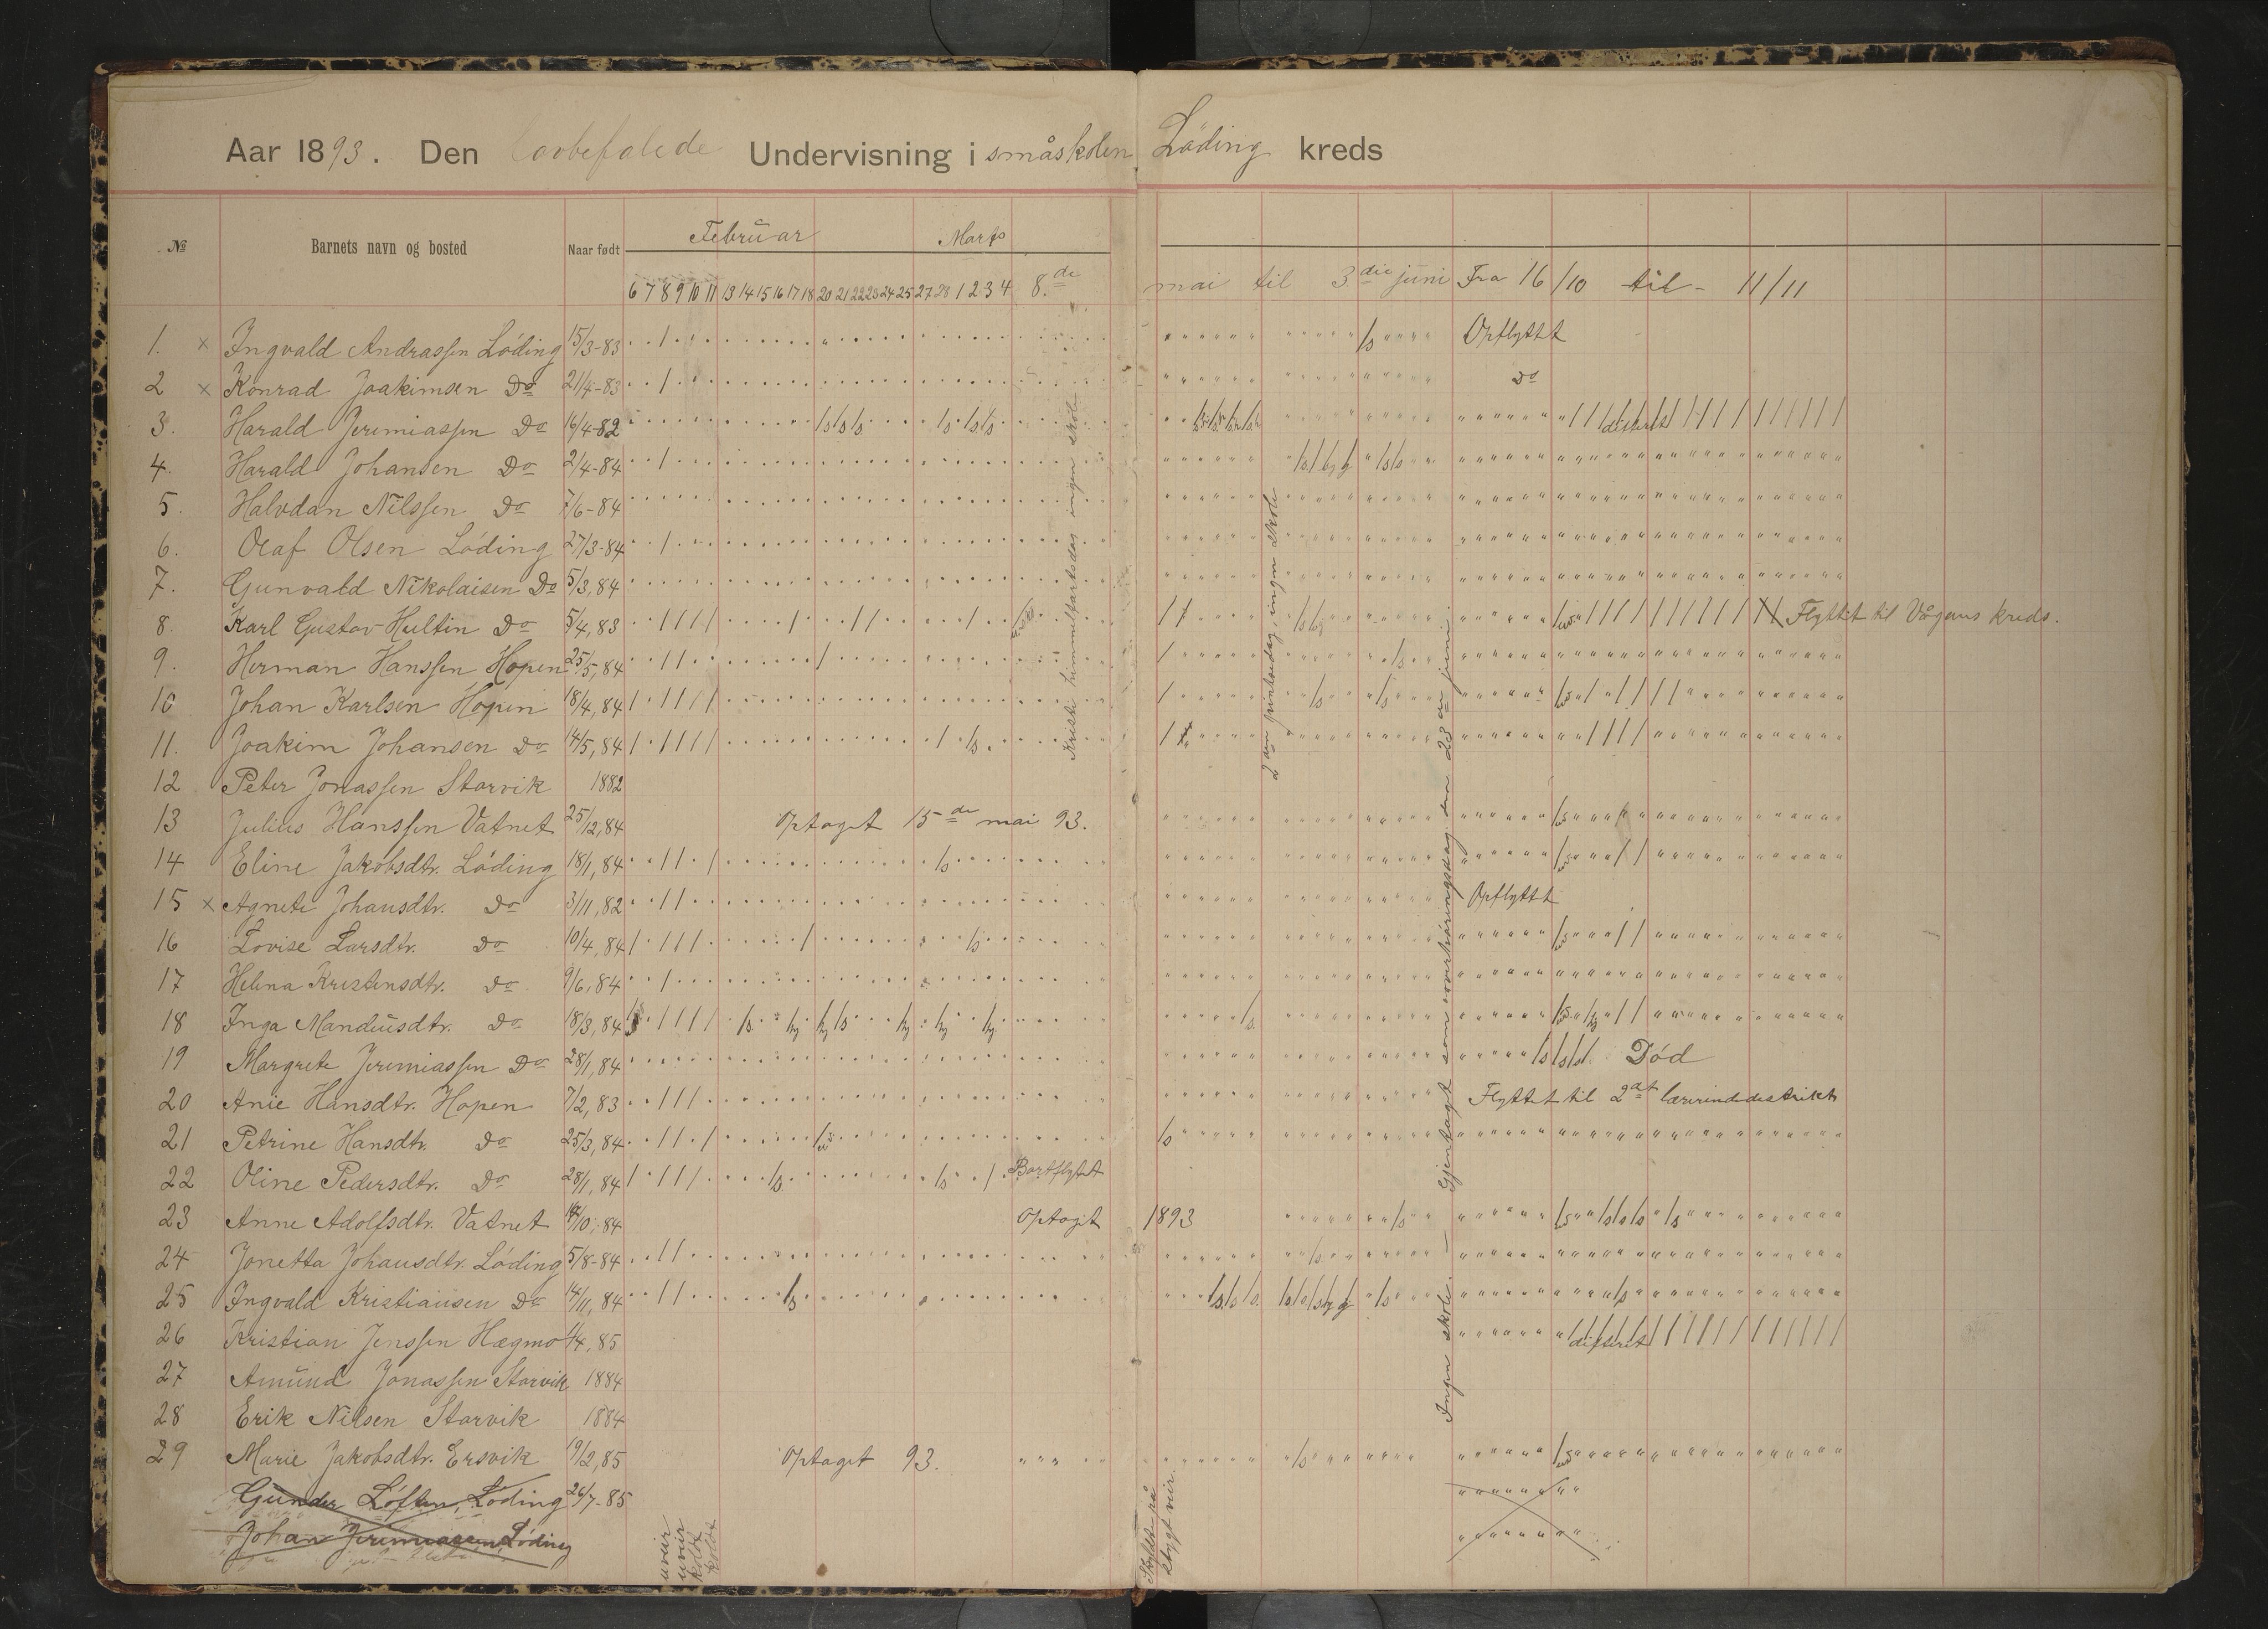 Aar 1893. Den lovbefalede Undervisning i småskolen Löding kreds
№ Barnets navn og bosted Naar født Februar Marts
6 7 8 9 10 11 13 14 15 16 17 18 20 21 22 23 24 25 27 28 1 2 3 4 8.de mai til 3die juni Fra 16/10 til - 11/11
1. × Ingvald Andrassen Löding 15/3-83 Opflyttt
2 × Konrad Joakimsen Do 21/4-83 Do
3. Harald Jeremiassen Do 16/4-82
4. Harald Johansen Do 2/4-84
5. Halvdan Nilssen Do 7/6-84
6. Olaf Olsen Löding 27/3-84
7. Gunvald Nikolaisen Do 5/3,84
8. Karl Gustav Hultin Do 5/4,83 Flyttet til Vågans kreds.
9. Herman Hanssen Hopen 25/5,84
10 Johan Karlsen Hopen 18/4,84
11. Joakim Johansen Do 14/5,84
12 Peter Jonassen Storvik 1882
13 Julius Hanssen Vatnet 25/12,84 Optaget 15de mai 93.
14 Eline Jakobsdtr. Löding 18/1,84
15 × Agnete Johansdtr. Do 3/11,82 Opflyttt
16 Lovise Larsdtr. Do 10/4,84
17 Helena Kristensdtr. Do 9/6,84
18 Inga Mandeusdtr. Do 18/3,84
19 Margrete Jeremiassen Do 28/1,84 Död
20 Anie Hansdtr. Hopen 7/2,83 Flyttet til 2det lærerindedestrikt
21 Petrine Hansdtr. Do 25/3,84
22 Oline Pedersdtr. Do 28/1,84 Bortflyttt
23 Anne Adolfsdtr. Vatnet /10,84 Optaget 1893
24 Jonetta Johansdtr. Löding 5/8-84
25 Ingvald Kristiansen Do 14/11,84
26 Kristian Jenssen Hægmo 4/4,85 difterit
27 Amund Jonassen Storvik 1884
28 Erik Nilsen Storvik 1884
29 Marie Jakobsdtr. Ersvik 19/2,85 Optaget 93.
Gunder Löften, Löding 26/7-85
Johan Jeremiassen Löding
uveir
uveir
koldt
koldt
Kristi himmelfartsdag ingen skole
Skyldtes på
stygt veir.
2den pinsedag, ingen skole
Ingen skole. — Gjentagt som den 23de juni.